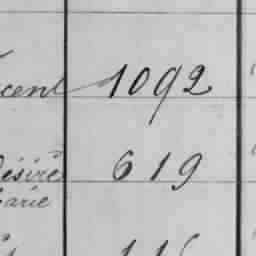 cent 1092
ésiré 619
arie